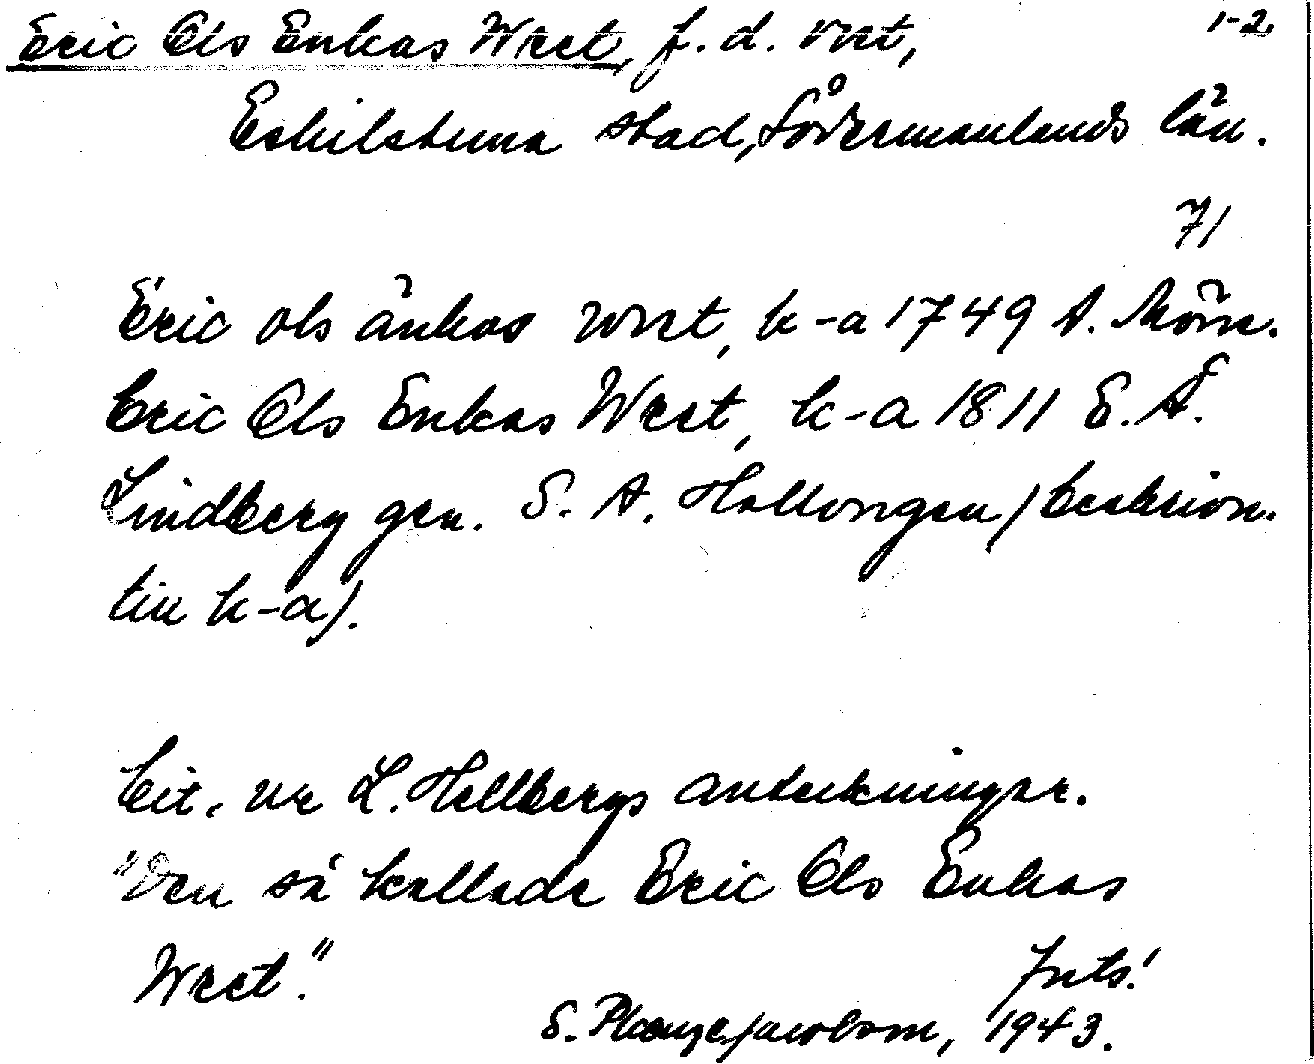 Eric Ols Enkas Wret, f. d. vret, 1-2
Eskilstuna stad, Södermanlands län.
71
Eric ols änkas wret, k-a 1749 A. Mörn.
Eric Ols Enkas Wret, k-a 1811 E. Å.
Lindberg gen. S. A. Hallongren (beskrivn.
till k-a).
Cit. ur L. Hellbergs anteckningar.
"Den så kallade Eric Ols Enkas
Wret."
Forts!
S. 1943.